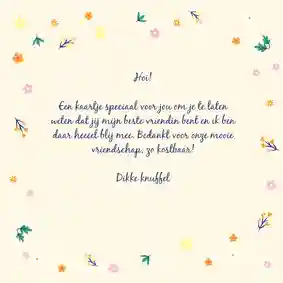 Hoi!
Een kaartje speciaal voor jou om je te laten
weten dat jij mijn beste vriendin bent en ik ben
daar heeeel blij mee. Bedankt voor onze mooie
vriendschap, zo kostbaar!
Dikke knuffel